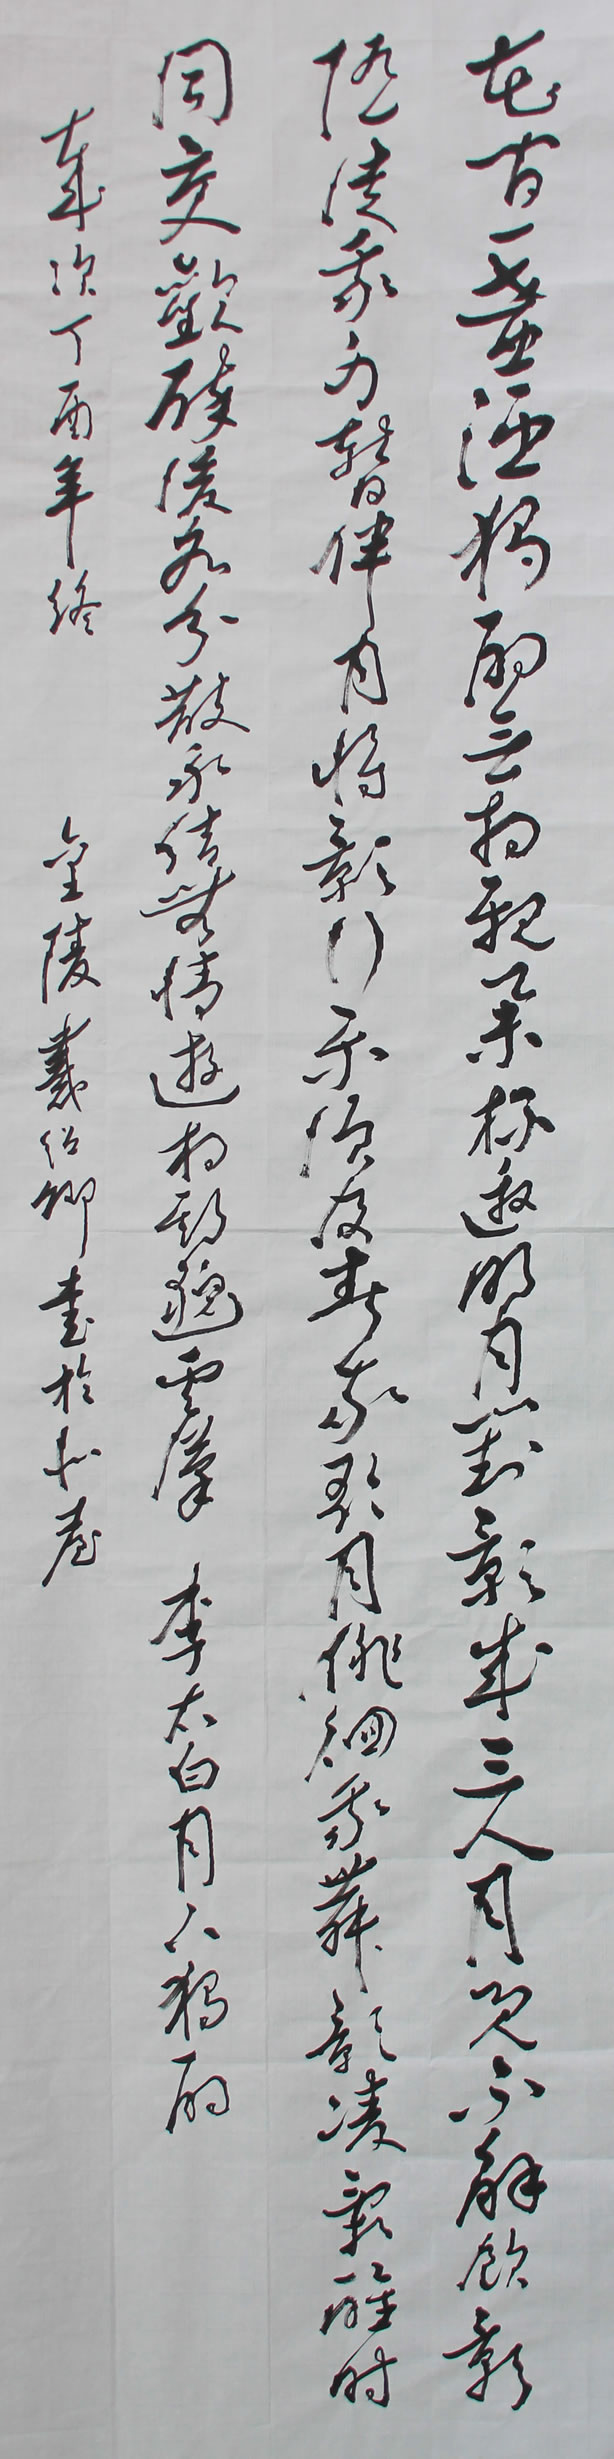 花间一壶酒独酌无相亲举杯邀明月對影成三人月既不解飲影
随徒我身暂伴月将影行乐须及春我歌月俳徊我舞影凌亂醒时
同交歡醉後各分散永结無情遊相期邈雲漢 李太白月下獨酌
歲次丁酉年终 皇陵戴绍卿書於